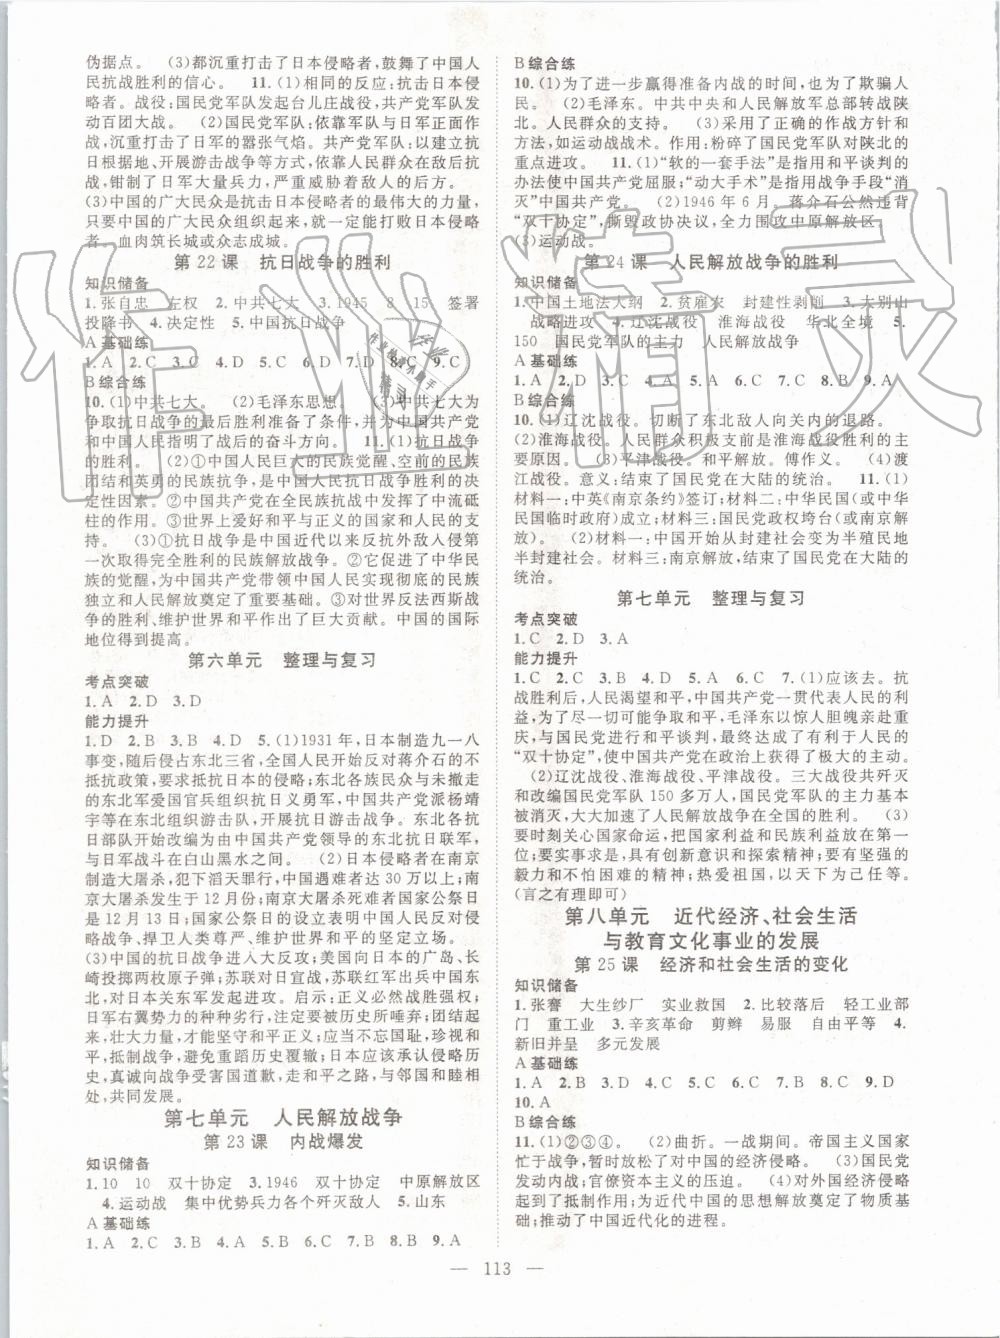 伪据点。 (3)都沉重打击了日本侵略者,鼓舞了中国人
民抗战胜利的信心。 11.(1)相同的反应:抗击日本侵
略者。战役:国民党军队发起台儿庄战役,共产党军队发
动百团大战。 (2)国民党军队:依靠军队与日军正面作
战,沉重打击了日军的嚣张气焰。共产党军队:建立抗
日根据地、开展游击战争等方式,依靠人民在敌后抗
战,钳制了日军大量兵力,严重威胁着敌人的后方。
(3)中国的广大民众是抗击日本侵略者的最伟大的力量,
只要中国的广大民众组织起来,就一定能打败日本侵略
者。血肉筑长城或众志成城。
第22课 抗日战争的胜利
知识储备
1.张自忠 左权 2.中共七大 3.1945 8 15 签署
投降书 4.决定性 5.中国抗日战争
A基础练
1.A 2.C 3.C 4.D 5.D 6.C 7.D 8.C 9.C
B综合练
10.(1)中共七大。 (2)毛泽东思想。 (3)中共七大为
争取抗日战争的最后胜利准备了条件,并为中国共产党
和中国人民指明了战后的奋斗方向。 11.(1)抗日战争
的胜利。 (2)①中国人民巨大的民族觉醒、空前的民族
团结和英勇的民族抗争,是中国人民抗日战争胜利的决
定性因素。②中国共产党在全民族抗战中发挥了中流砥
柱的作用。③世界上爱好和平与正义的国家和人民的支
持。 (3)①抗日战争是中国近代以来反抗外敌入侵第
一次取得完全胜利的民族解放战争。②它促进了中华民
族的觉醒,为中国共产党带领中国人民实现彻底的民族
独立和人民解放奠定了重要基础。③对世界反法西斯战
争的胜利、维护世界和平作出了巨大贡献。中国的国际
地位得到提高。
第六单元 整理与复习
考点突破
1.A 2.D 3.D
能力提升
1.D 2.B 3.A 4.D 5.(1)1931年,日本制造九一八
事变,随后侵占东北三省,全国人民开始反对蒋介石的不
抵抗政策,要求抵抗日本的侵略;东北各族民众与未撤走
的东北军爱国官兵组织抗日义勇军,中国共产党派杨靖
宇等在东北组织游击队,开展抗日游击战争。东北各抗
日部队开始改编为由中国共产党领导的东北抗日联军,
与日军战斗在白山黑水之间。 (2)日本侵略者在南京
制造南京大屠杀,犯下滔天罪行,遇难者达30万以上;南
京大屠杀发生于12月份;南京大屠杀死难者国家公祭日
是12月13日;国家公祭日的设立表明中国人民反对侵
略战争、捍卫人类尊严、维护世界和平的坚定立场。
(3)中国的抗日战争进入大反攻;美国向日本的广岛、长
崎投掷两枚原子弹;苏联对日宣战,苏联红军出兵中国东
北,对日本关东军发起进攻。启示:正义必然战胜强权,
日军右翼势力的种种劣行,注定要被历史所唾弃;团结起
来,壮大力量,才能坚守和平正义;应当不忘国耻,珍视和
平,阻止战争,避免重蹈历史覆辙;日本应该承认侵略历
史,真诚向战争受害国道歉,走和平之路,与邻国和睦相
处,共同发展。
第七单元 人民解放战争
第23课 内战爆发
知识储备
1.10 10 双十协定 3.1946 双十协定 中原解放区
4.运动战 集中优势兵力各个歼灭敌人 5.山东
A基础练
1.A 2.C 3.A 4.A 5.D 6.D 7.B 8.B 9.A
B综合练
10.(1)为了进一步赢得准备内战的时间,也为了欺骗人
民。 (2)毛泽东。中共中央和人民解放军总部转战陕
北。人民群众的支持。 (3)采取了正确的作战方针和
方法,如运动战战术。作用:粉碎了国民党军队对陕北的
重点进攻。 11.(1)“软的一套手法”是指用和平谈判的
办法使中国共产党屈服;“动大手术”是指用战争手段“消
灭”中国共产党。 (2)1946年6月,蒋介石公然违背
“双十协定”,撕毁政协决议,全力围攻中原解放区。
(3)运动战。
第24课 人民解放战争的胜利
知识储备
1.中国土地法大纲 2.贫雇农 封建性剥削 3.大别山
战略进攻 4.辽沈战役 淮海战役 华北全境 5.
150 国民党军队的主力 人民解放战争
A基础练
1.D 2.A 3.C 4.D 5.A 6.D 7.C 8.B 9.A
B综合练
10.(1)辽沈战役。切断了东北敌人向关内的退路。
(2)淮海战役。人民群众积极支前是淮海战役胜利的主
要原因。 (3)平津战役。和平解放。傅作义。 (4)渡
江战役。意义:结束了国民党在大陆的统治。 11.(1)
材料一:中英《南京条约》签订;材料二:中华民国(或中华
民国临时政府)成立;材料三:国民党政权垮台(或南京解
放)。 (2)材料一:中国开始从封建社会变为半殖民地
半封建社会。材料三:南京解放,结束了国民党在大陆的
统治。
第七单元 整理与复习
考点突破
1.C 2.D 3.A
能力提升
1.C 2.A 3.B 4.D 5.A 6.D 7.(1)应该去。抗
战胜利后,人民渴望和平,中国共产党一贯代表人民的利
益,为了尽一切可能争取和平,毛泽东以惊人胆魄亲赴重
庆,与国民党进行和平谈判,最终达成了有利于人民的
“双十协定”,使中国共产党在政治上获得了极大的主动。
(2)辽沈战役、淮海战役、平津战役。三大战役共歼灭
和改编国民党军队150多万人,国民党军队的主力基本
被消灭,大大加速了人民解放战争在全国的胜利。 (3)
要时刻关心国家命运,把国家利益和民族利益放在第一
位;要实事求是,具有创新意识和探索精神;要有坚强的
毅力和不怕困难的精神;热爱祖国,以天下为己任等。
(言之有理即可)
第八单元 近代经济、社会生活
与教育文化事业的发展
第25课 经济和社会生活的变化
知识储备
1.张謇 大生纱厂 实业救国 2.比较落后 轻工业部
门 重工业 3.辛亥革命 剪辫 易服 自由平等 4.
新旧并呈 多元发展
A基础练
1.D 2.C 3.B 4.D 5.A 6.C 7.B 8.C 9.D
10.A
B综合练
11.(1)①②③④。 (2)曲折。一战期间。帝国主义国家
忙于战争,暂时放松了对中国的经济侵略。 (3)国民党
发动内战;官僚资本主义的压迫。 (4)对外国经济侵略
起到了抵制作用;为近代中国的思想解放奠定了物质基
础;推动了中国近代化的进程。
— 113 —
作业精灵